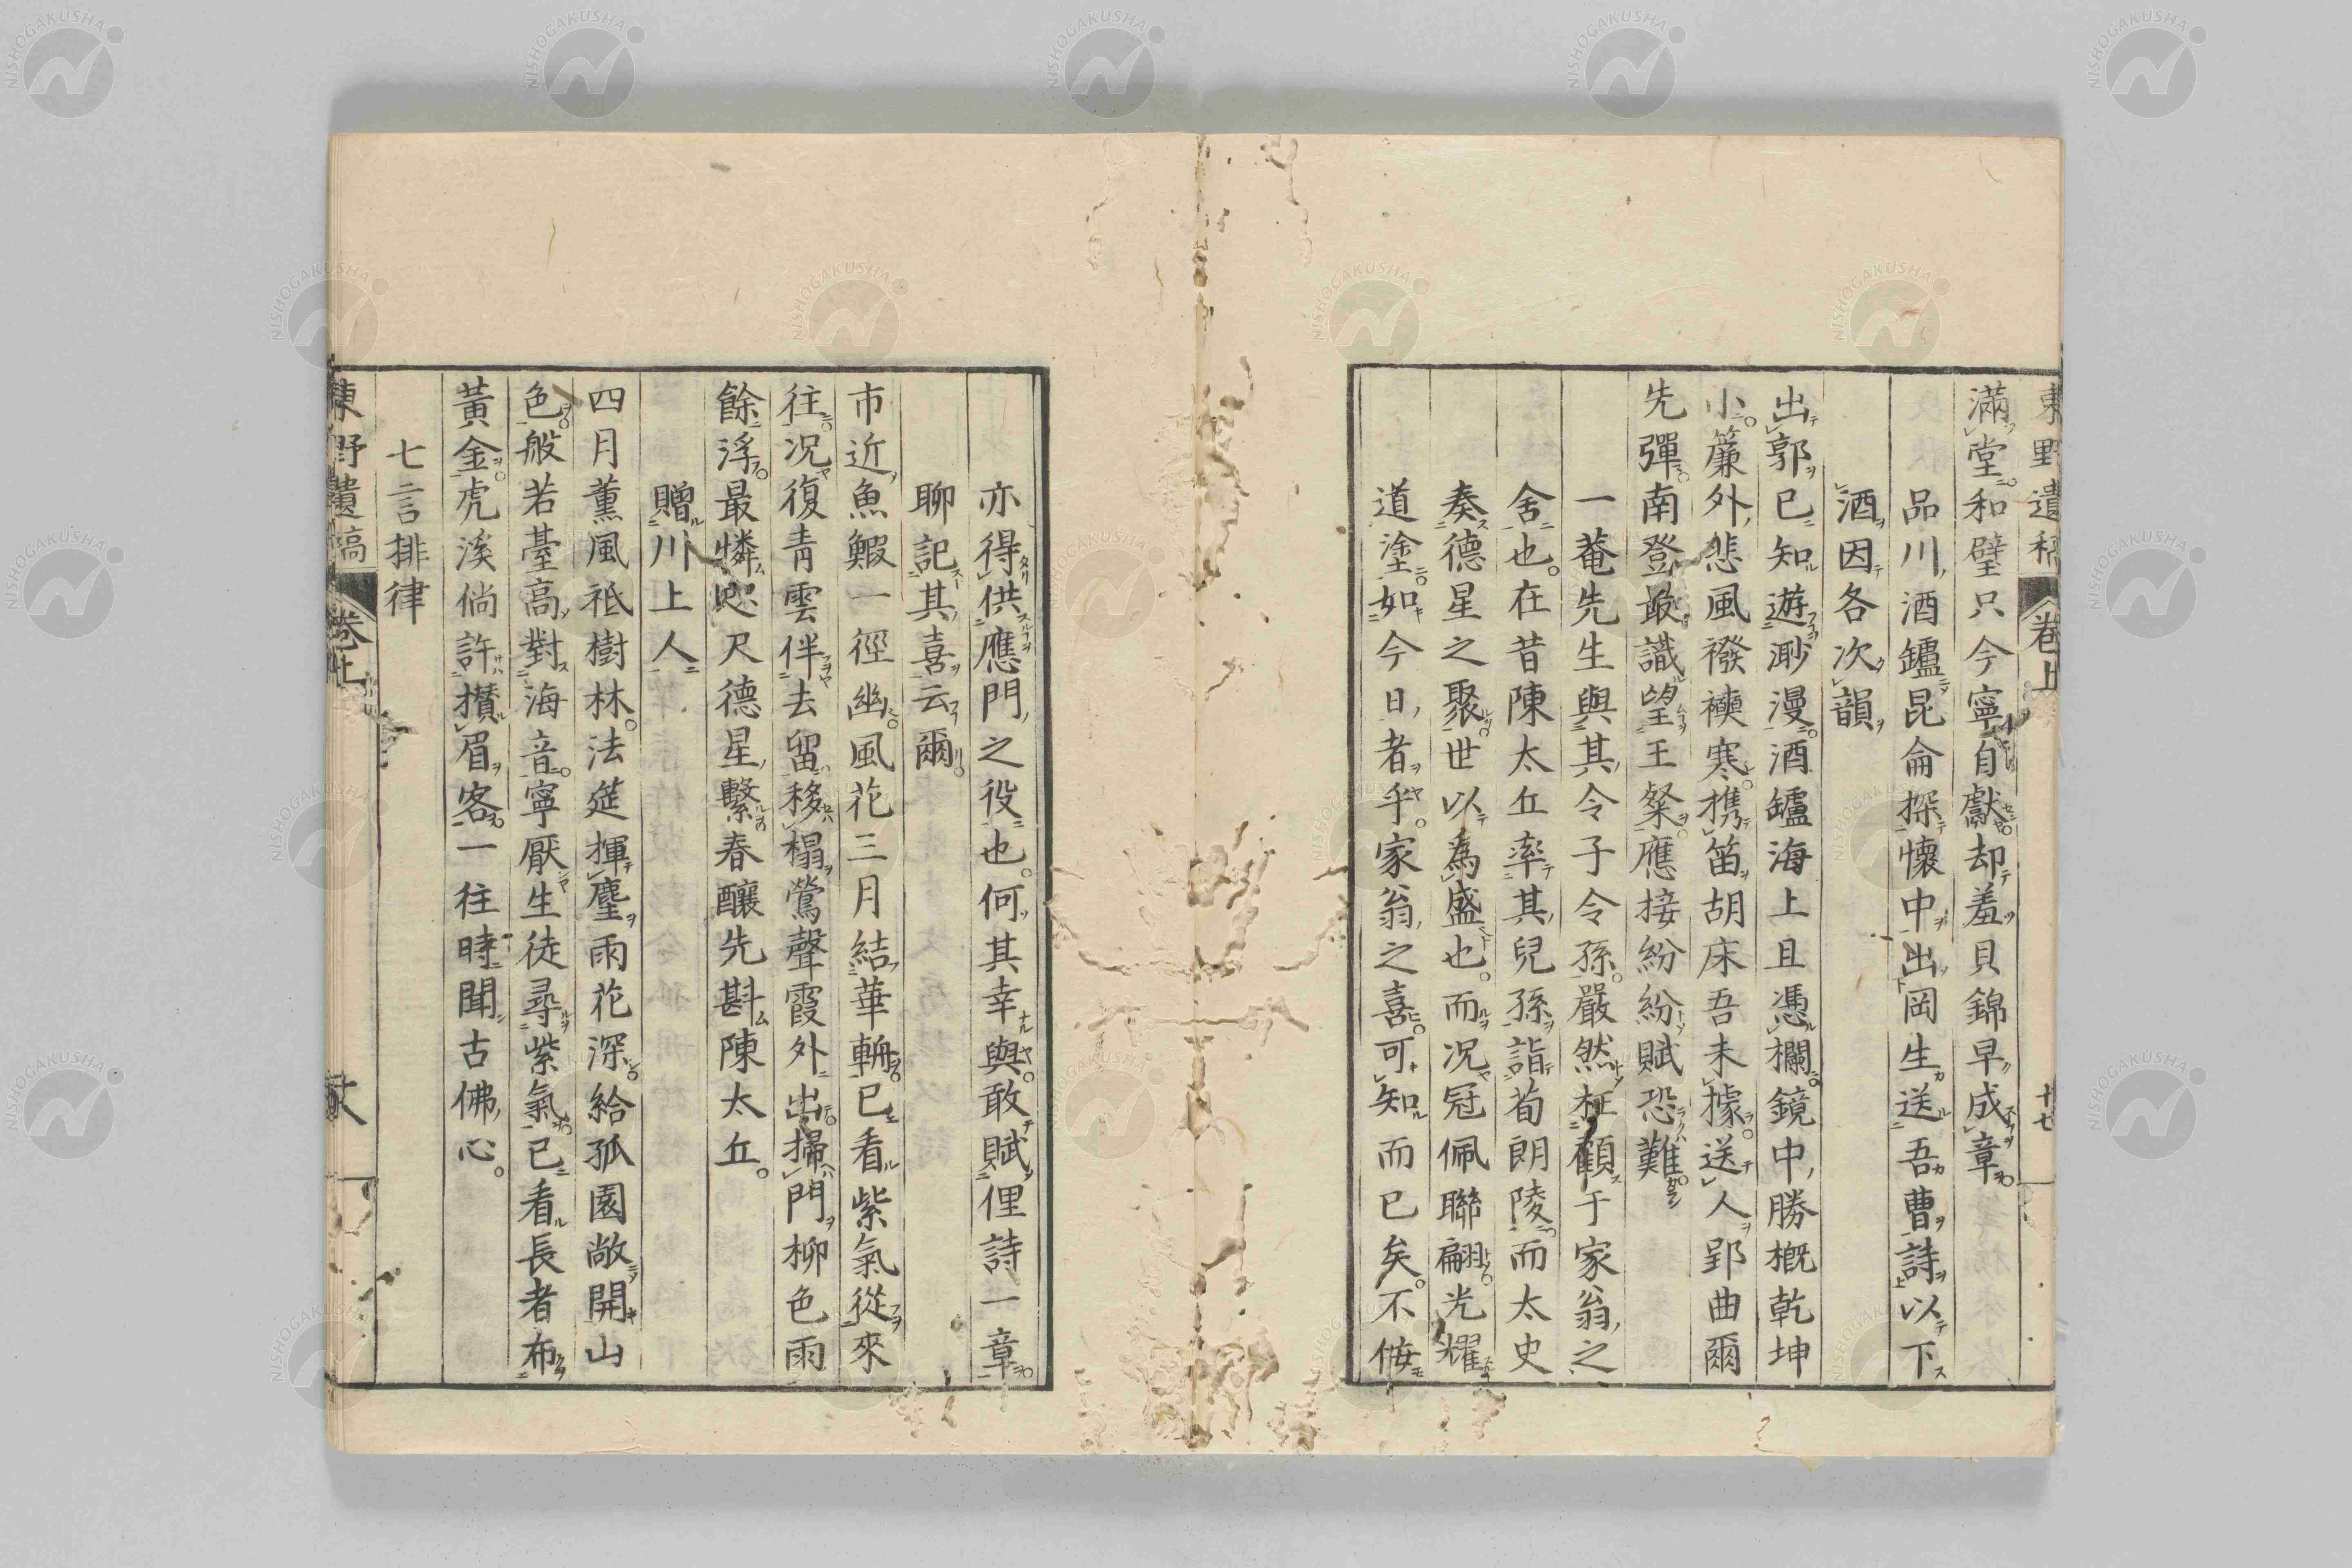 東野遺稿 卷上 十七
滿堂和璧只今寧自獻却羞貝錦早成章
品川酒罏昆侖探懷中出岡生送吾曹詩以下
酒因各次韻
出郭已知遊渺漫酒罏海上且憑欄鏡中勝概乾坤
小簾外悲風襏襫寒携笛胡床吾未據送人郢曲爾
先彈南登最識望王粲應接紛紛賦恐難
一菴先生與其令子令孫嚴然枉顧于家翁之
舍也在昔陳太丘率其兒孫詣荀朗陵而太史
奏德星之聚世以為盛也而况冠佩聯翩光耀
道塗如今日者乎家翁之喜可知而已矣不佞
亦得供應門之役也何其幸與敢賦俚詩一章
聊記其喜云爾
市近魚鰕一徑幽風花三月結華輈已看紫氣從來
往况復青雲伴去留移榻鶯聲霞外出掃門柳色雨
餘浮最憐咫尺德星繫春釀先斟陳太丘
贈川上人
四月薰風祗樹林法筵揮麈雨花深給孤園敞開山
色般若臺高對海音寧厭生徒尋紫氣已看長者布
黃金虎溪倘許攅眉客一往時聞古佛心
七言排律
東野遺稿 卷上
NISHOGAKUSHA